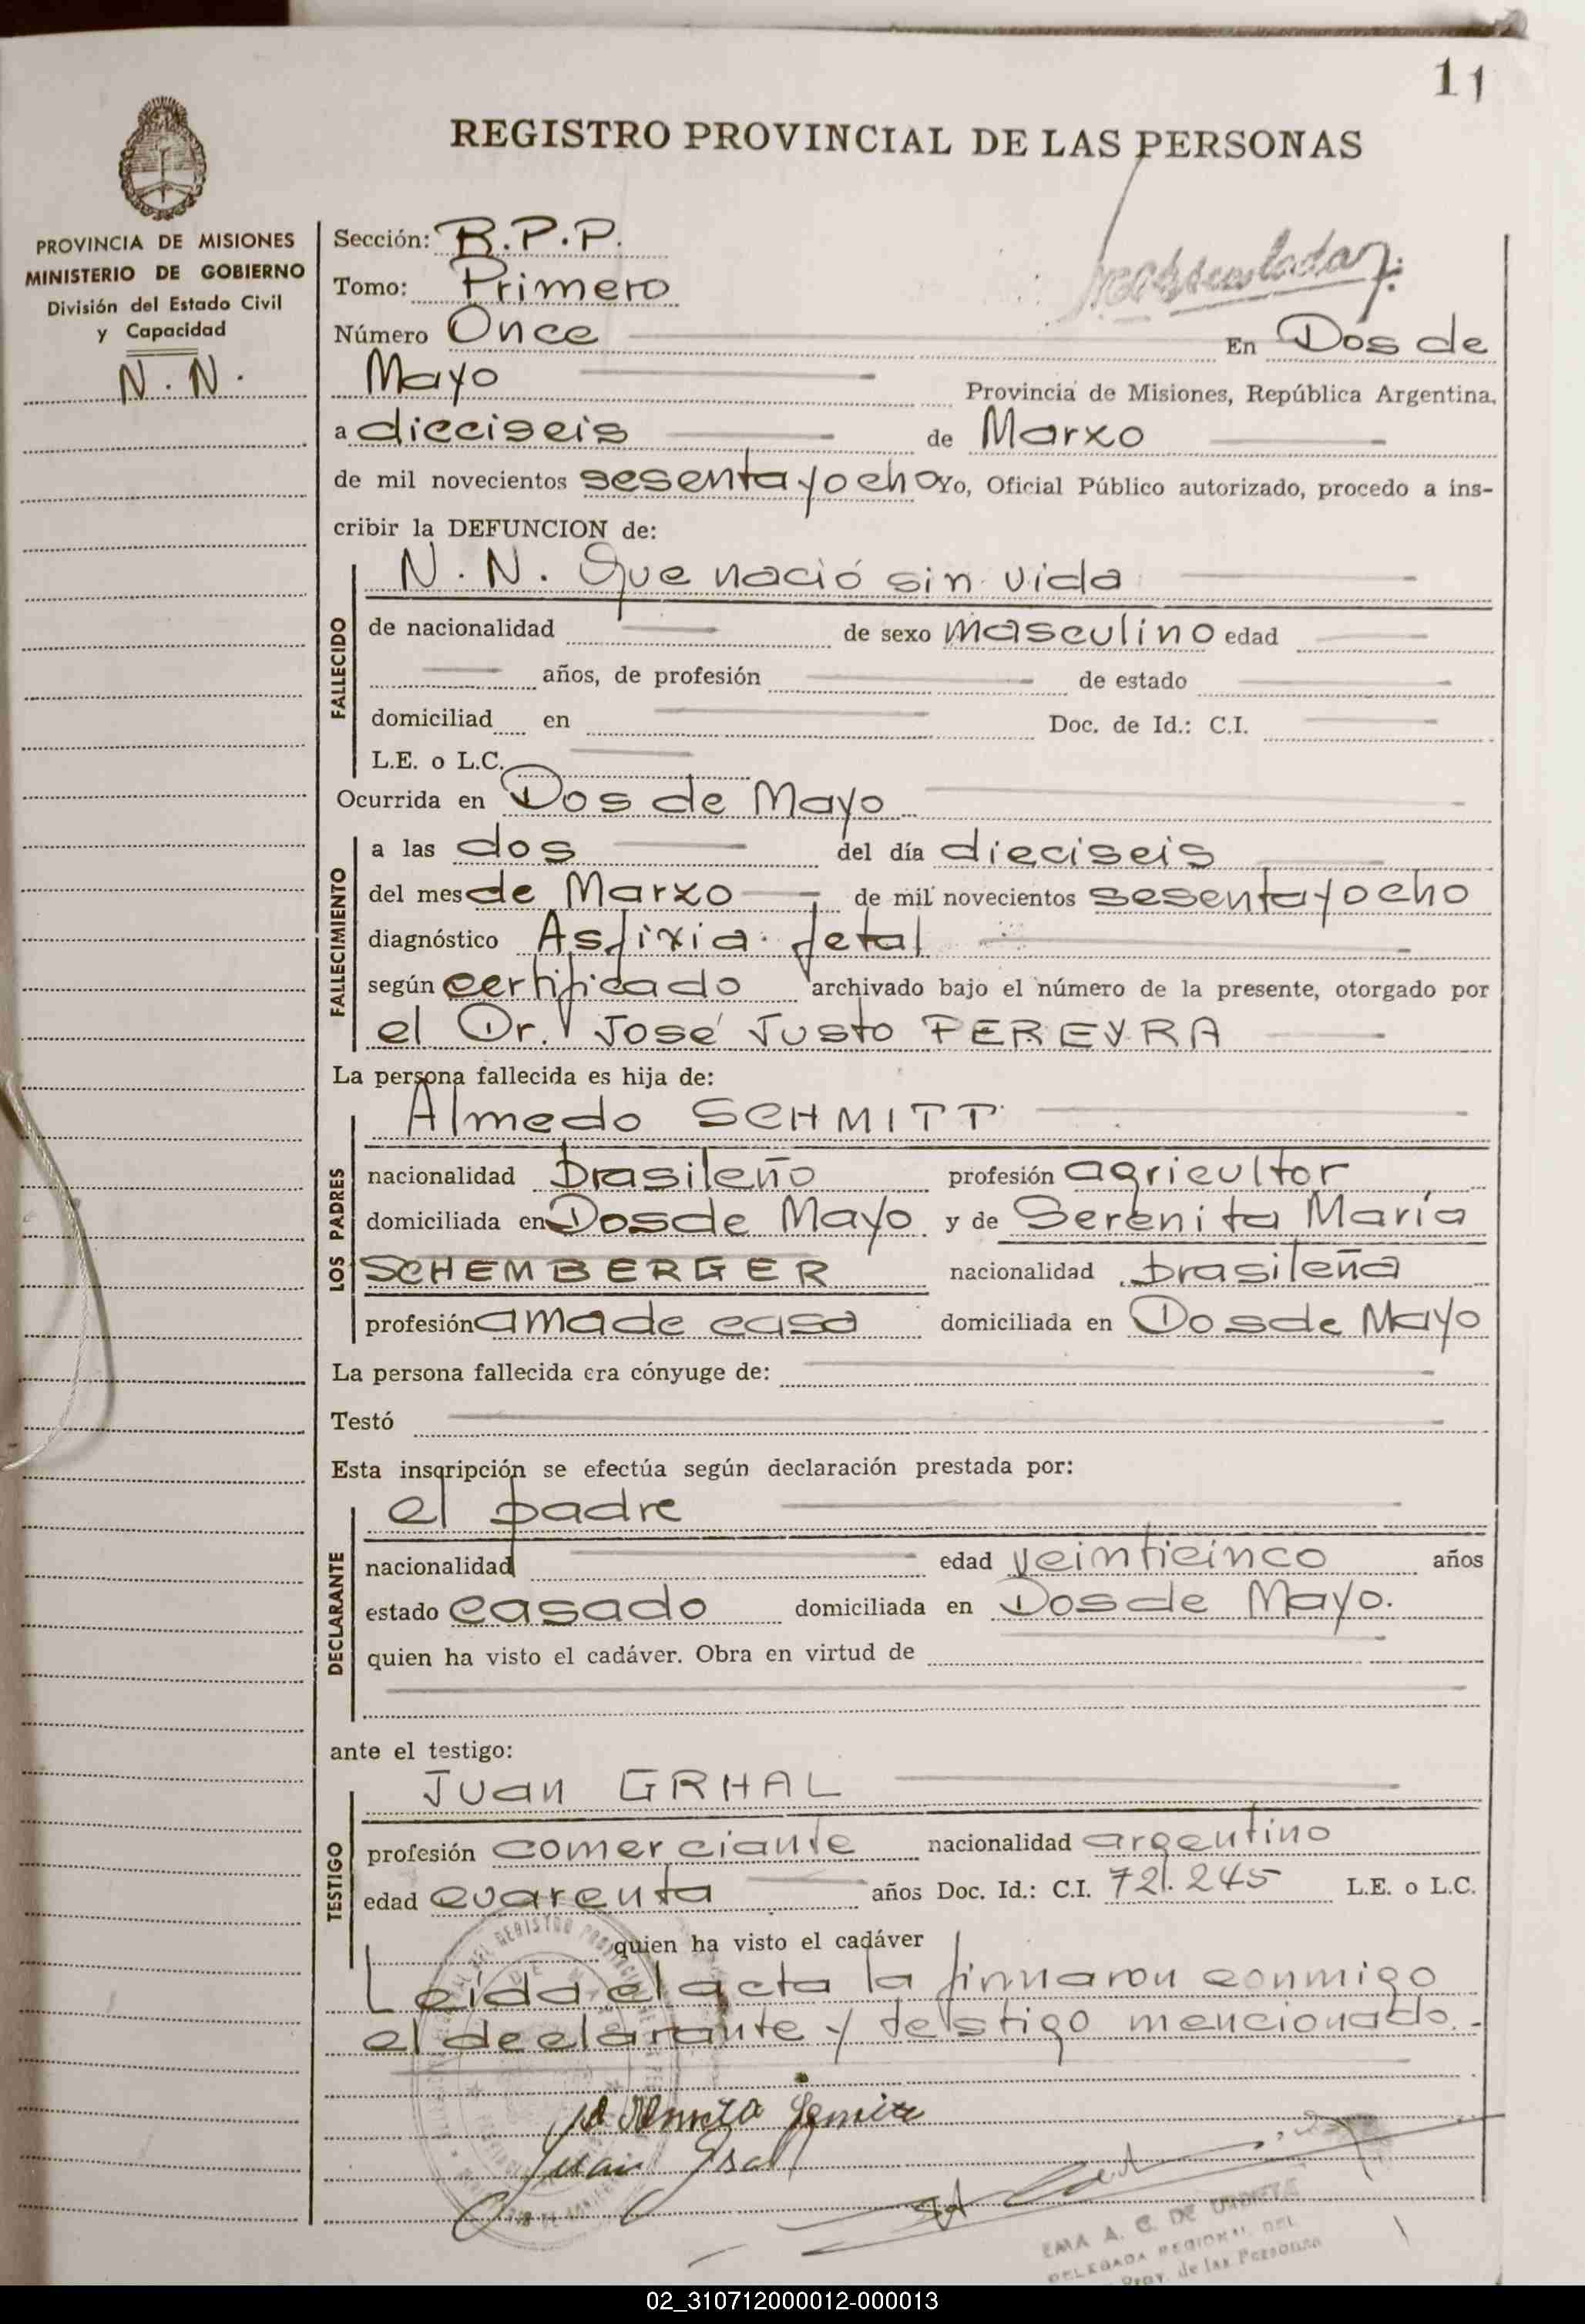 11
REGISTRO PROVINCIAL DE LAS PERSONAS
PROVINCIA DE MISIONES
MINISTERIO DE GOBIERNO
División del Estado Civil
y Capacidad
N.N.
Sección: R.P.P.
Tomo: Primero
Número Once En Dos de
Mayo Provincia de Misiones, República Argentina,
a dieciseis de Marzo
de mil novecientos sesenta y ocho Yo, Oficial Público autorizado, procedo a ins-
cribir la DEFUNCION de:
FALLECIDO
N.N. Que nació sin vida
de nacionalidad de sexo masculino edad
años, de profesión de estado
domiciliad en Doc. de Id.: C.I.
L.E. o L.C.
Ocurrida en Dos de Mayo
FALLECIMIENTO
a las dos del día dieciseis
del mes de Marzo de mil novecientos sesenta y ocho
diagnóstico Asfixia fetal
según certificado archivado bajo el número de la presente, otorgado por
el Dr. José Justo PEREYRA
La persona fallecida es hija de:
LOS PADRES
Almedo SCHMITT
nacionalidad brasileño profesión agricultor
domiciliada en Dos de Mayo y de Serenita María
SCHEMBERGER nacionalidad brasileña
profesión ama de casa domiciliada en Dos de Mayo
La persona fallecida era cónyuge de:
Testó
Esta inscripción se efectúa según declaración prestada por:
DECLARANTE
el padre
nacionalidad edad veinticinco años
estado casado domiciliada en Dos de Mayo.
quien ha visto el cadáver. Obra en virtud de
ante el testigo:
TESTIGO
Juan GRHAL
profesión comerciante nacionalidad argentino
edad cuarenta años Doc. Id.: C.I. 721.245 L.E. o L.C.
quien ha visto el cadáver
Leida el acta la firmaron conmigo
el declarante y testigo mencionado.-
Juan
EMA A. C. DE URDIETE
DELEGADA REGIONAL DEL
Prov. de las Personas
02_310712000012-000013